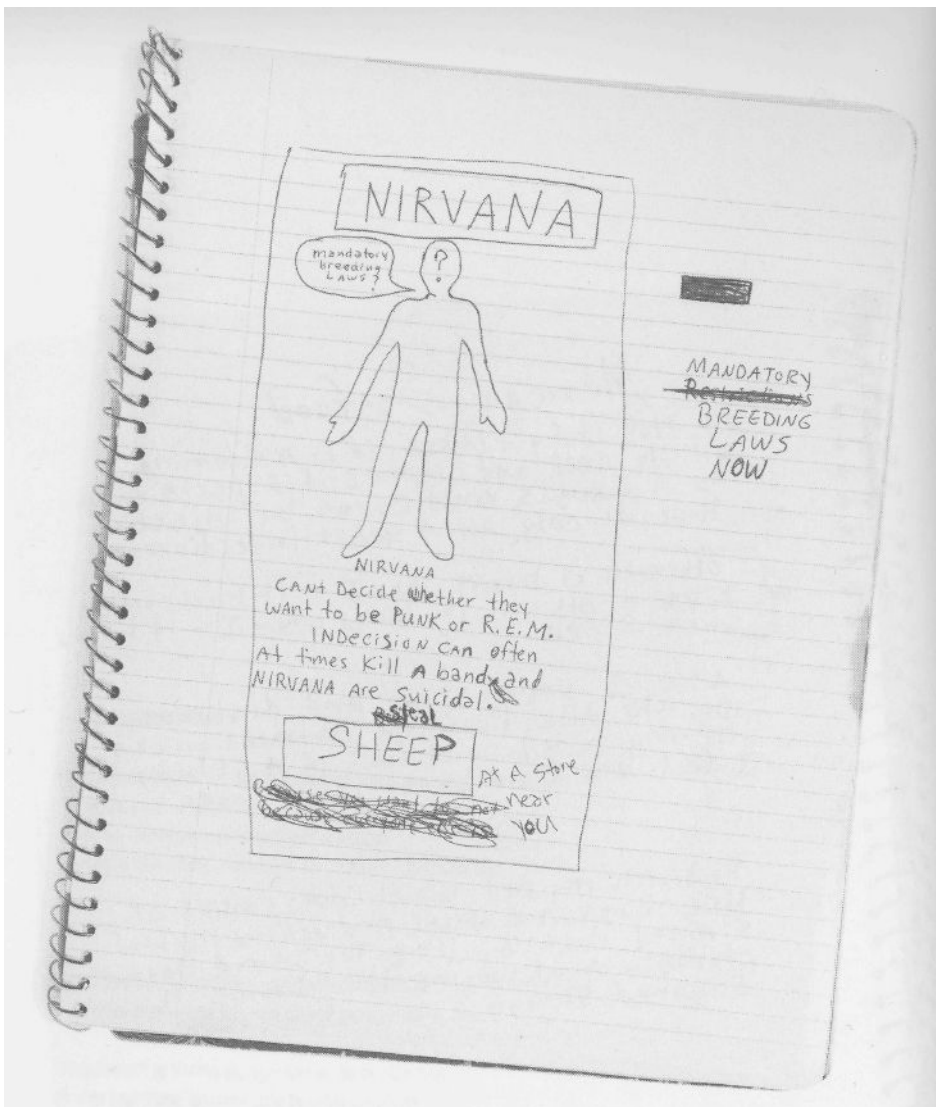 NIRVANA
mandatory
breeding
LAWS?
?
NIRVANA
CANt Decide whether they
WANt to be PUNK or R.E.M.
INDecisioN CAN often
At times Kill A band and
NIRVANA Are Suicidal.
Steal
SHEEP
At A Store
near
you
MANDATORY
Restrictions
BREEDING
LAWS
NOW